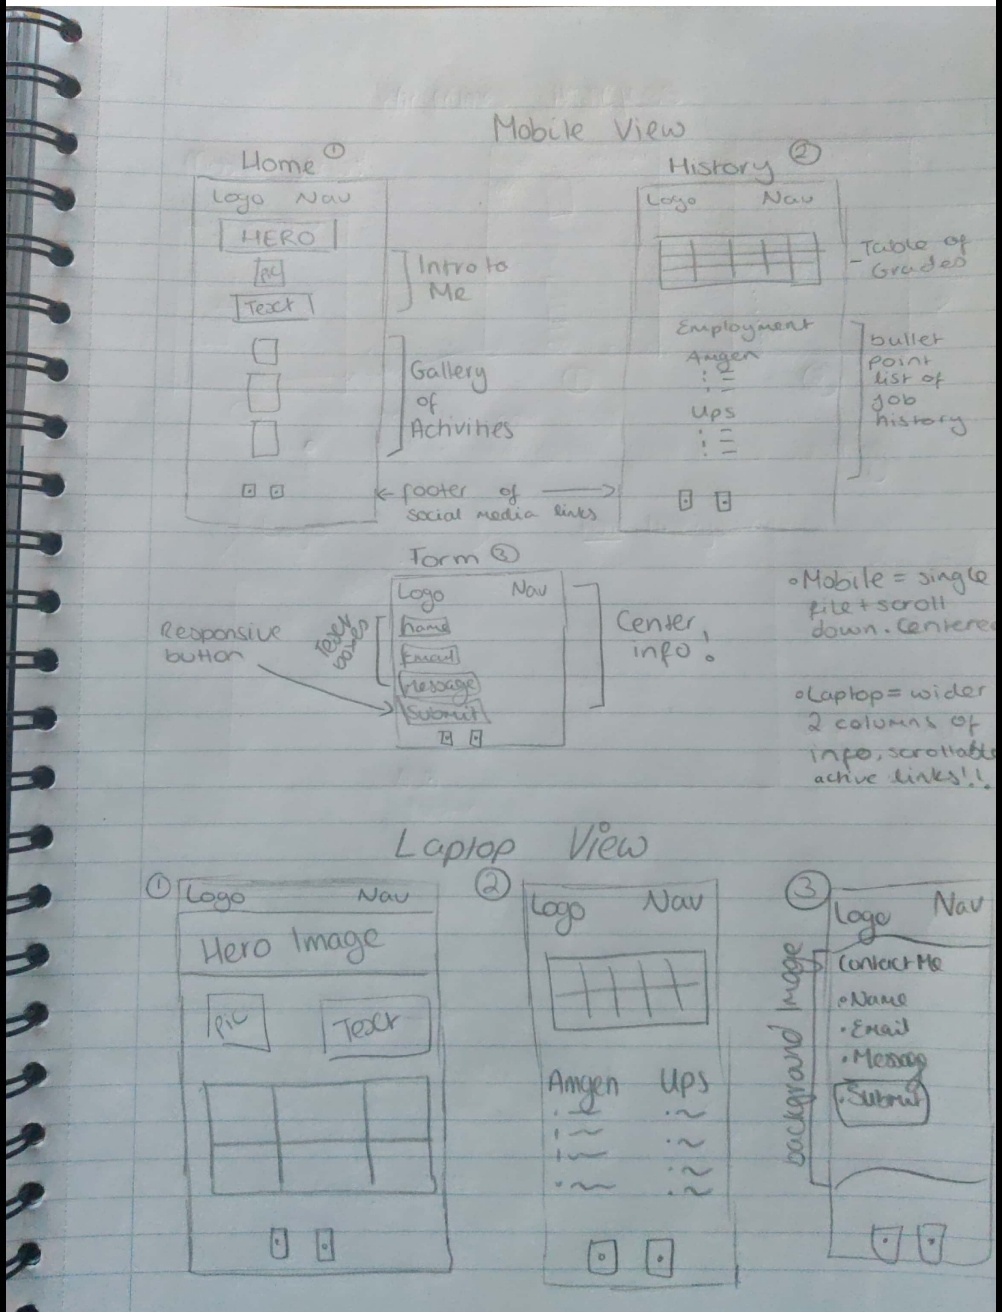 Mobile View
Home ①
Logo Nav
HERO
Pic
Text
Intro to
Me
Gallery
of
Activities
← footer of →
social media links
History ②
Logo Nav
- Table of
Grades
Employment
Amgen
Ups
bullet
point
list of
job
history
Form ③
Logo Nav
name
Email
Message
Submit
Text
boxes
Responsive
button
Center
info!
• Mobile = single
file + scroll
down. Centered
• Laptop = wider
2 columns of
info, scrollable
active links!!
Laptop View
①
Logo Nav
Hero Image
Pic
Text
②
Logo Nav
Amgen Ups
③
Logo Nav
Contact Me
• Name
• Email
• Message
• Submit
background Image